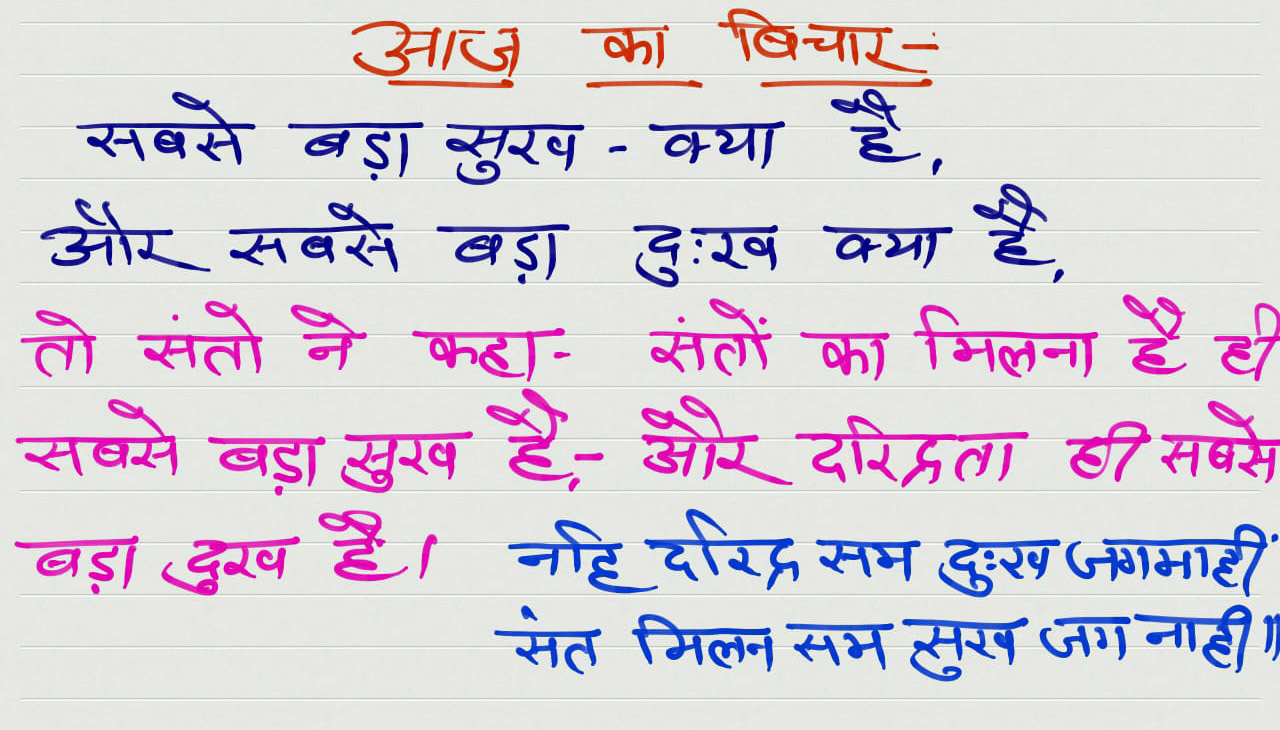 आज का बिचार-
सबसे बड़ा सुख - क्या है,
और सबसे बड़ा दुःख क्या है,
तो संतो ने कहा- संतों का मिलना है ही
सबसे बड़ा सुख है,- और दरिद्रता ही सबसे
बड़ा दुख है।
नहि दरिद्र सम दुःख जगमाहीं
संत मिलन सम सुख जग नाही॥